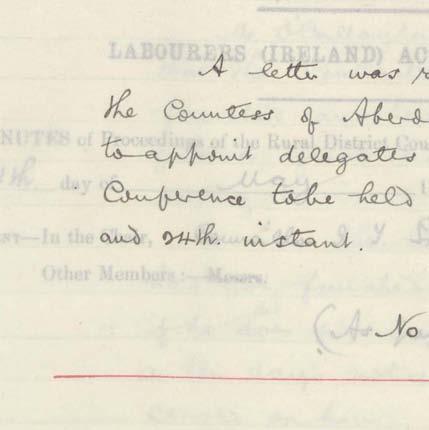 LABOURERS (IRELAND) AC
A letter was r
the Countess of Aberd
NUTES of Proceedings of the Rural District Cou
to appoint delegates
4th day of May
Conference to be held
In the Chair,
and 24th. instant.
Other Members :—Messrs.
(As
No